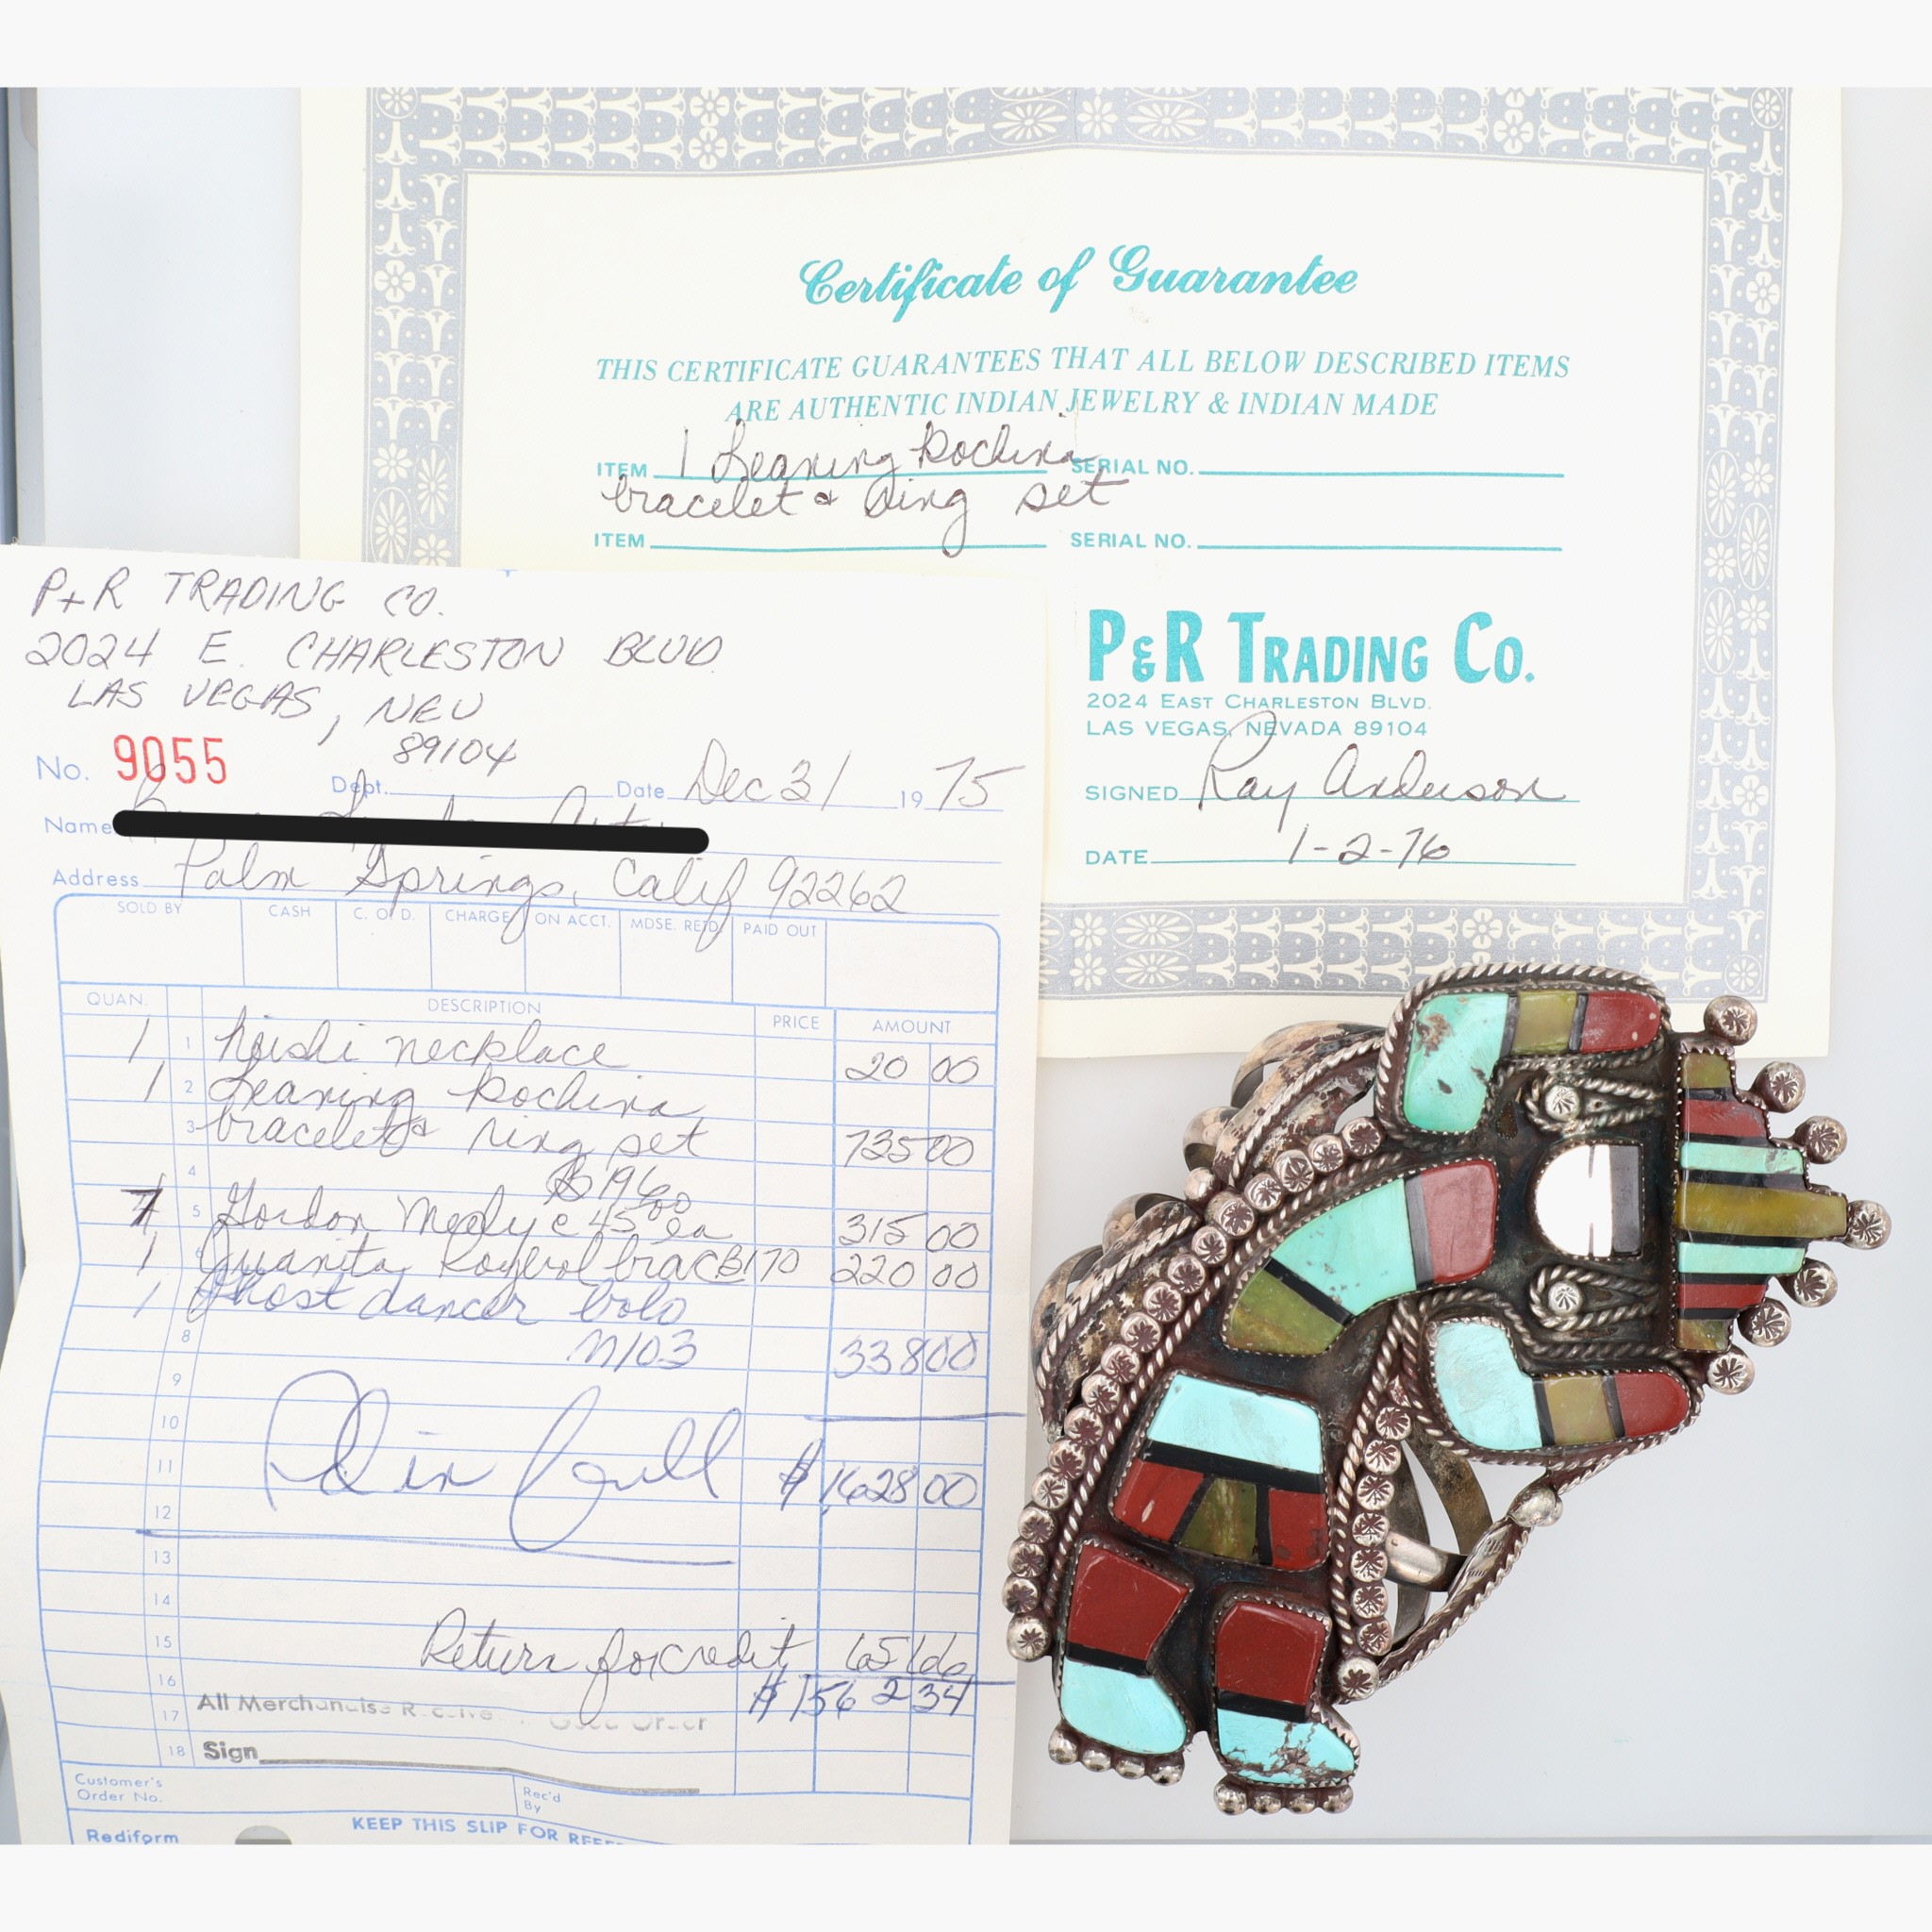 Certificate of Guarantee
THIS CERTIFICATE GUARANTEES THAT ALL BELOW DESCRIBED ITEMS
ARE AUTHENTIC INDIAN JEWELRY & INDIAN MADE
ITEM 1 Leaning Kochina SERIAL NO.
bracelet & Ring set
ITEM SERIAL NO.
P&R TRADING CO.
2024 EAST CHARLESTON BLVD.
LAS VEGAS, NEVADA 89104
SIGNED Ray Anderson
DATE 1-2-76
P+R TRADING CO.
2024 E. CHARLESTON BLVD.
LAS VEGAS, NEV
89104
No. 9055 Dept. Date Dec 31 1975
Name
Address Palm Springs, Calif 92262
SOLD BY CASH C. O. D. CHARGE ON ACCT. MDSE. RETD. PAID OUT
QUAN. DESCRIPTION PRICE AMOUNT
1 1 heishi necklace 20 00
1 2 Leaning Kochina
3 bracelet & ring set 735 00
4 B196
5 Gordon @ 45 00 ea 315 00
1 6 Juanita brac B170 220 00
1 Ghost dancer bolo
8 M103 338 00
9
10
11 $ 1,628 00
12
13
14
15 Return for credit 65 66
16 $ 1562 34
17 All Merchandise
18 Sign
Customer's
Order No.
Rec'd
By
Rediform
KEEP THIS SLIP FOR